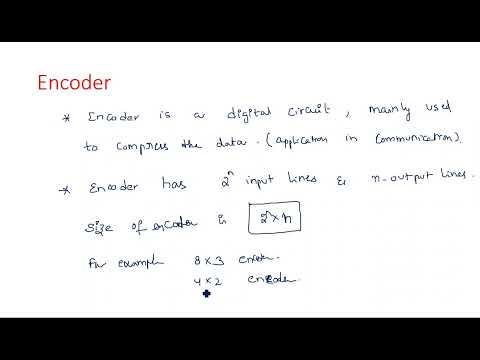 Encoder
* Encoder is a digital circuit, mainly used
to compress the data. (application in communication).
* Encoder has 2^n input lines & n-output lines.
size of encoder is 2^n×n
for example 8×3 encoder.
4×2 encoder.